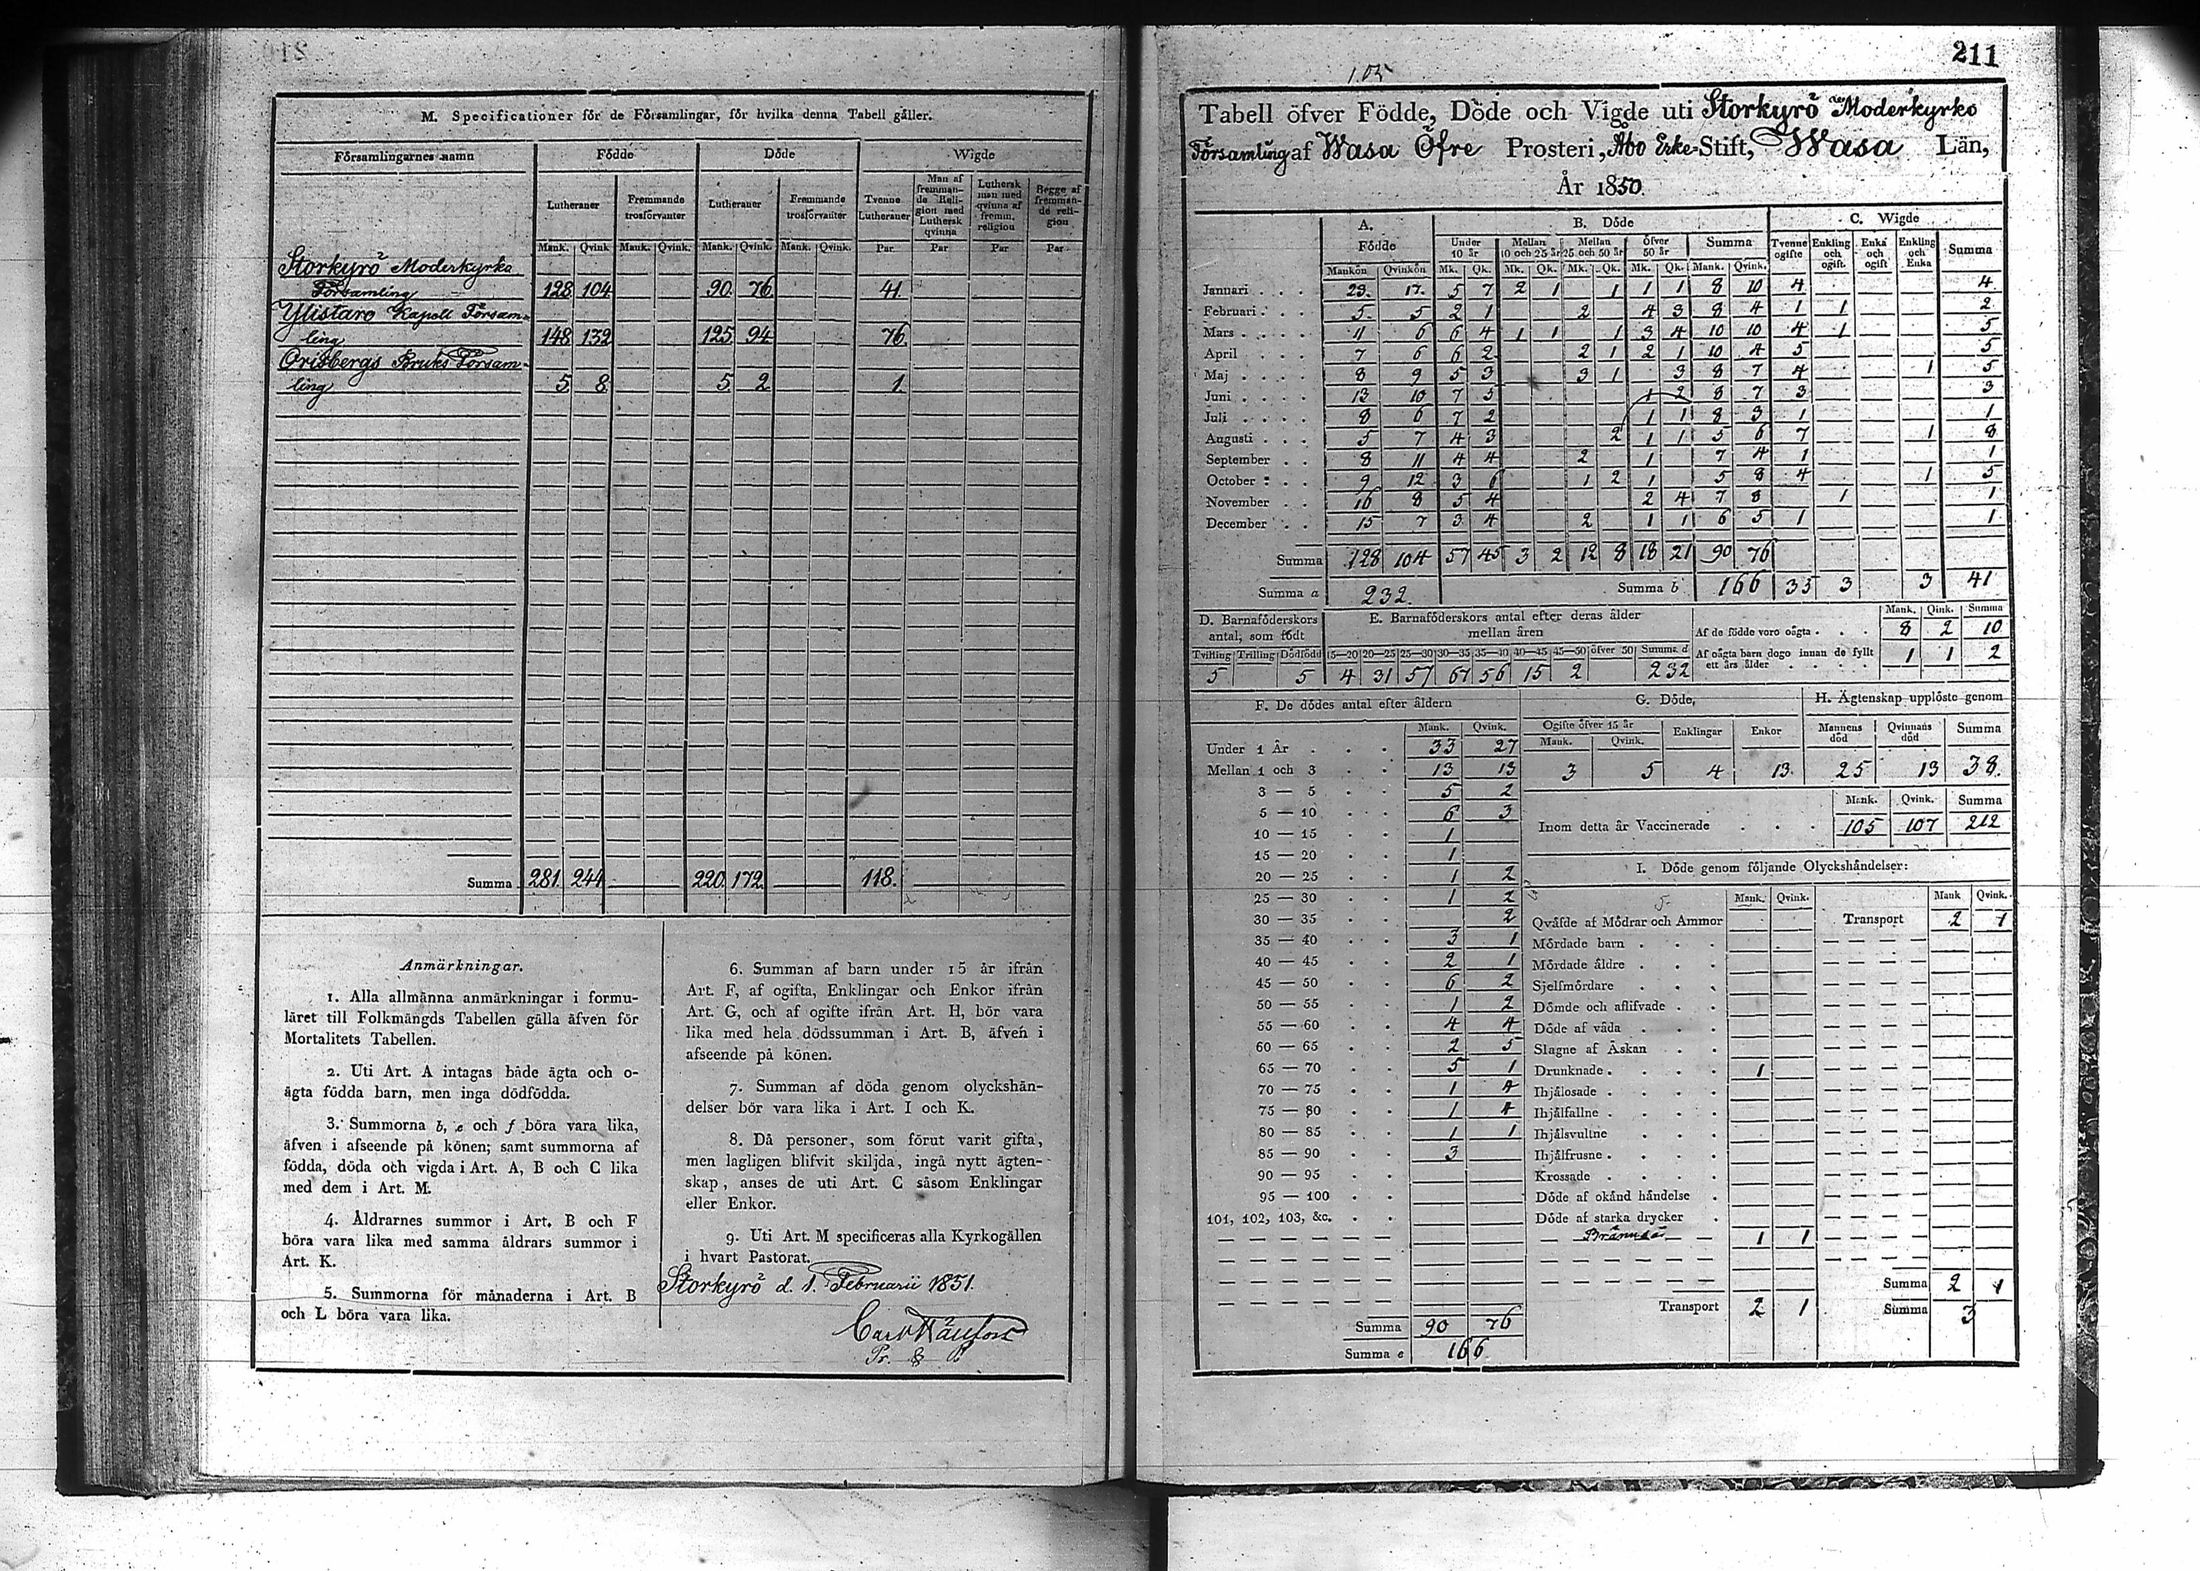 M. Specificationer för de Församlingar, för hvilka denna Tabell gäller.
Församlingarnes namn | Födde | Döde | Wigde
Lutheraner | Fremmande trosförvanter | Lutheraner | Fremmande trosförvanter | Tvenne Lutheraner | Man af fremmande Religion med Luthersk qvinna | Luthersk man med qvinna af fremm. religion | Begge af fremmande religion
Mank. | Qvink | Mank. | Qvink. | Mank. | Qvink. | Mank. | Qvink. | Par | Par | Par | Par
Storkyrö Moderkyrko
Församling 128 104 90 76 41
Ylistaro Kapell Försam=
ling 148 132 125 94 76
Orisbergs Bruks Försam-
ling 5 8 5 2 1
Summa 281 244 220 172 118.
Anmärkningar.
1. Alla allmänna anmärkningar i formu-
läret till Folkmängds Tabellen gälla äfven för
Mortalitets Tabellen.
2. Uti Art. A intagas både ägta och o-
ägta födda barn, men inga dödfödda.
3. Summorna b, e och f böra vara lika,
äfven i afseende på könen; samt summorna af
födda, döda och vigda i Art. A, B och C lika
med dem i Art. M.
4. Åldrarnes summor i Art. B och F
böra vara lika med samma åldrars summor i
Art. K.
5. Summorna för månaderna i Art. B
och L böra vara lika.
6. Summan af barn under 15 år ifrån
Art. F, af ogifta, Enklingar och Enkor ifrån
Art. G, och af ogifte ifrån Art. H, bör vara
lika med hela dödssumman i Art. B, äfven i
afseende på könen.
7. Summan af döda genom olyckshän-
delser bör vara lika i Art. I och K.
8. Då personer, som förut varit gifta,
men lagligen blifvit skiljda, ingå nytt ägten-
skap, anses de uti Art. C såsom Enklingar
eller Enkor.
9. Uti Art. M specificeras alla Kyrkogällen
i hvart Pastorat.
Storkyrö d. 1. Februarii 1851.
Carl
211
105
Tabell öfver Födde, Döde och Vigde uti Storkyrö Moderkyrko
Församling af Wasa Öfre Prosteri, Åbo Erke-Stift, Wasa Län,
År 1850.
A. Födde | B. Döde | C. Wigde
Under 10 år | Mellan 10 och 25 år | Mellan 25 och 50 år | öfver 50 år | Summa | Tvenne ogifte | Enkling och ogift. | Enka och ogift | Enkling och Enka | Summa
Mankön | Qvinkön | Mk. | Qk. | Mk. | Qk. | Mk. | Qk. | Mk. | Qk. | Mank. | Qvink.
Januari 23. 17. 5 7 2 1 1 1 1 8 10 4 4
Februari 5 5 2 1 2 4 3 8 4 1 1 2
Mars 11 6 6 4 1 1 1 3 4 10 10 4 1 5
April 7 6 6 2 2 1 2 1 10 4 5 5
Maj 8 9 5 3 3 1 3 8 7 4 1 5
Juni 13 10 7 5 1 2 8 7 3 3
Juli 8 6 7 2 1 1 8 3 1 1
Augusti 5 7 4 3 2 1 1 5 6 7 1 8
September 8 11 4 4 2 1 7 4 1 1
October 9 12 3 6 1 2 1 5 8 4 1 5
November 16 8 5 4 2 4 7 8 1 1
December 15 7 3 4 2 1 1 6 5 1 1
Summa 128 104 57 45 3 2 12 8 18 21 90 76
Summa a 232. Summa b 166 35 3 3 41
D. Barnaföderskors antal, som födt | E. Barnaföderskors antal efter deras ålder mellan åren
Mank. | Qink. | Summa
Af de födde voro oägta 8 2 10
Tvilling | Trilling | Dödfödd | 15—20 | 20—25 | 25—30 | 30—35 | 35—40 | 40—45 | 45—50 | öfver 50 | Summa d
Af oägta barn dogo innan de fyllt ett års ålder 1 1 2
5 5 4 31 57 67 56 15 2 232
F. De dödes antal efter åldern
Mank. | Qvink.
Under 1 År 33 27
Mellan 1 och 3 13 13
3 — 5 5 2
5 — 10 6 3
10 — 15 1
15 — 20 1
20 — 25 1 2
25 — 30 1 2
30 — 35 2
35 — 40 3 1
40 — 45 2 1
45 — 50 6 2
50 — 55 1 2
55 — 60 4 4
60 — 65 2 5
65 — 70 5 1
70 — 75 1 4
75 — 80 1 4
80 — 85 1 1
85 — 90 3
90 — 95
95 — 100
101, 102, 103, &c.
Summa 90 76
Summa e 166
G. Döde,
Ogifte öfver 15 år | Enklingar | Enkor
Mank. | Qvink.
3 5 4 13.
H. Ägtenskap upplöste genom
Mannens död | Qvinnans död | Summa
25 13 38.
Mank. | Qvink. | Summa
Inom detta år Vaccinerade 105 107 212
I. Döde genom följande Olyckshändelser:
Mank. | Qvink. | Mank | Qvink.
Qväfde af Mödrar och Ammor
Mördade barn
Mördade äldre
Sjelfmördare
Dömde och aflifvade
Döde af våda
Slagne af Åskan
Drunknade 1
Ihjälosade
Ihjälfallne
Ihjälsvultne
Ihjälfrusne
Krossade
Döde af okänd händelse
Döde af starka drycker
Brännda 1 1
Transport 2 1
Transport 2 1
Summa 2 1
Summa 3